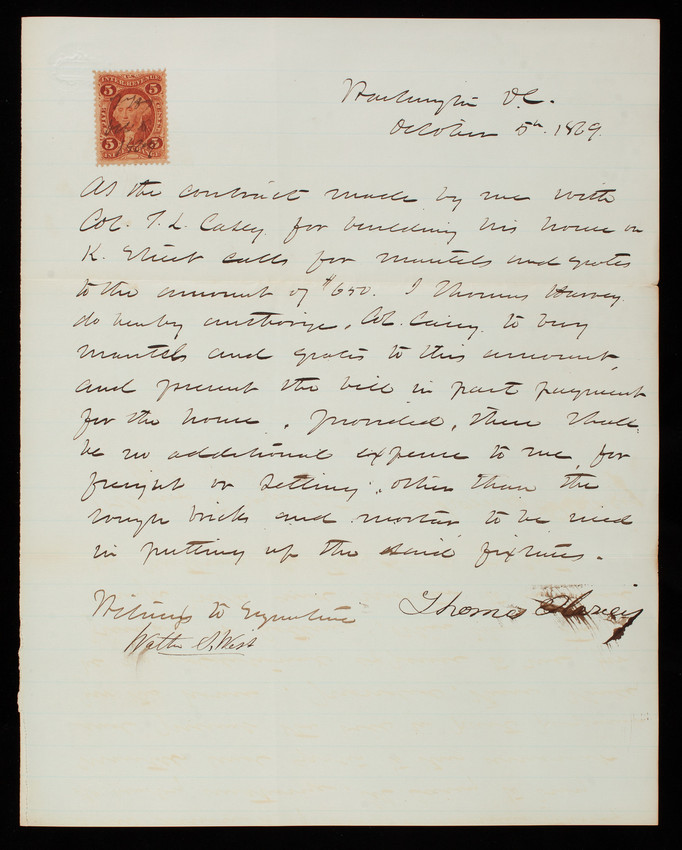 5 U.S. INTER. REV. 5
FIVE CENTS
5 5
Washington D.C.
October 5th 1869.
As the contract made by me with
Col. T. L. Casey for building his house on
K. Street calls for mantels and grates
to the amount of $650. I Thomas Harvey
do hereby authorize, Col. Casey to buy
mantels and grates to this amount,
and present the bill in part payment
for the house, provided, there shall
be no additional expense to me, for
freight or setting, other than the
rough bricks and mortar to be used
in putting up the said fixtures.
Witness to Signature
Thomas Harvey
Walter S. West